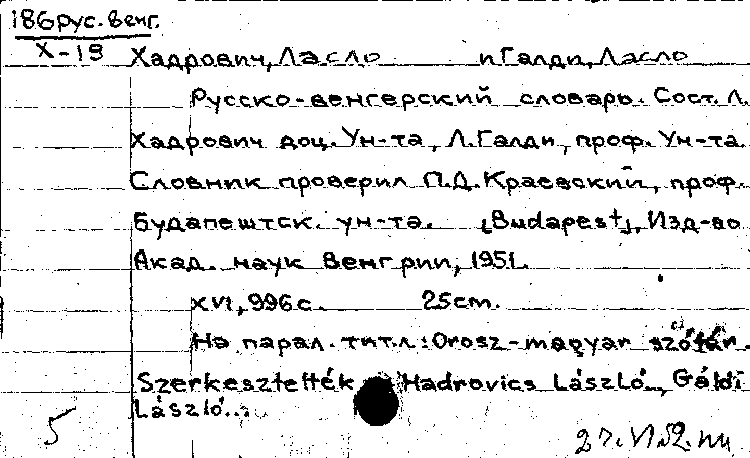 186рус.венг.
Х-19
Хадрович, Ласло и Галди, Ласло
Русско-венгерский словарь. Сост. Л.
Хадрович доц. Ун-та, Л. Галди, проф. Ун-та.
Словник проверил П.Д. Краевский, проф.
Будапештск. ун-та. [Budapest], Изд-во
Акад. наук Венгрии, 1951.
XVI, 996 с. 25 cm.
На парал. тит.л.: Orosz-magyar szótár.
Szerkesztették Hadrovics László., Gáldi
László..
5